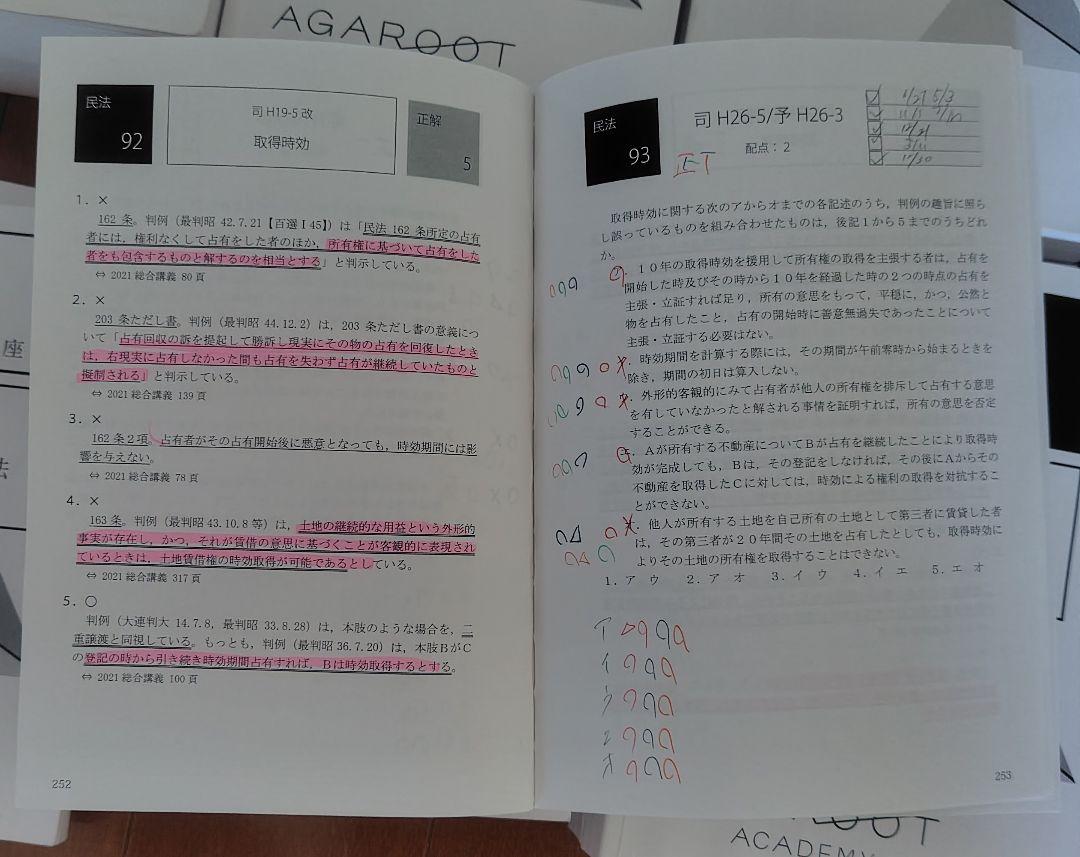 AGAROOT
民法
92
司 H19-5 改
取得時効
正解
5
1．×
162 条。判例（最判昭 42.7.21【百選Ⅰ45】）は「民法 162 条所定の占有
者には，権利なくして占有をした者のほか，所有権に基づいて占有をした
者をも包含するものと解するのを相当とする」と判示している。
⇔ 2021 総合講義 80 頁
2．×
203 条ただし書。判例（最判昭 44.12.2）は，203 条ただし書の意義につ
いて「占有回収の訴を提起して勝訴し現実にその物の占有を回復したとき
は，右現実に占有しなかった間も占有を失わず占有が継続していたものと
擬制される」と判示している。
⇔ 2021 総合講義 139 頁
3．×
162 条2項。占有者がその占有開始後に悪意となっても，時効期間には影
響を与えない。
⇔ 2021 総合講義 78 頁
4．×
163 条。判例（最判昭 43.10.8 等）は，土地の継続的な用益という外形的
事実が存在し，かつ，それが賃借の意思に基づくことが客観的に表現され
ているときは，土地賃借権の時効取得が可能であるとしている。
⇔ 2021 総合講義 317 頁
5．○
判例（大連判大 14.7.8，最判昭 33.8.28）は，本肢のような場合を，二
重譲渡と同視している。もっとも，判例（最判昭 36.7.20）は，本肢BがC
の登記の時から引き続き時効期間占有すれば，Bは時効取得するとする。
⇔ 2021 総合講義 100 頁
252
民法
93
司 H26-5/予 H26-3
配点：2
取得時効に関する次のアからオまでの各記述のうち，判例の趣旨に照ら
し誤っているものを組み合わせたものは，後記1から5までのうちどれ
か。
１０年の取得時効を援用して所有権の取得を主張する者は，占有を
開始した時及びその時から１０年を経過した時の２つの時点の占有を
主張・立証すれば足り，所有の意思をもって，平穏に，かつ，公然と
物を占有したこと，占有の開始時に善意無過失であったことについて
主張・立証する必要はない。
時効期間を計算する際には，その期間が午前零時から始まるときを
除き，期間の初日は算入しない。
外形的客観的にみて占有者が他人の所有権を排斥して占有する意思
を有していなかったと解される事情を証明すれば，所有の意思を否定
することができる。
Aが所有する不動産についてBが占有を継続したことにより取得時
効が完成しても，Bは，その登記をしなければ，その後にAからその
不動産を取得したCに対しては，時効による権利の取得を対抗するこ
とができない。
他人が所有する土地を自己所有の土地として第三者に賃貸した者
は，その第三者が２０年間その土地を占有したとしても，取得時効に
よりその土地の所有権を取得することはできない。
1．ア ウ　2．ア オ　3．イ ウ　4．イ エ　5．エ オ
ア
イ
ウ
エ
オ
253
AGAROOT
ACADEMY